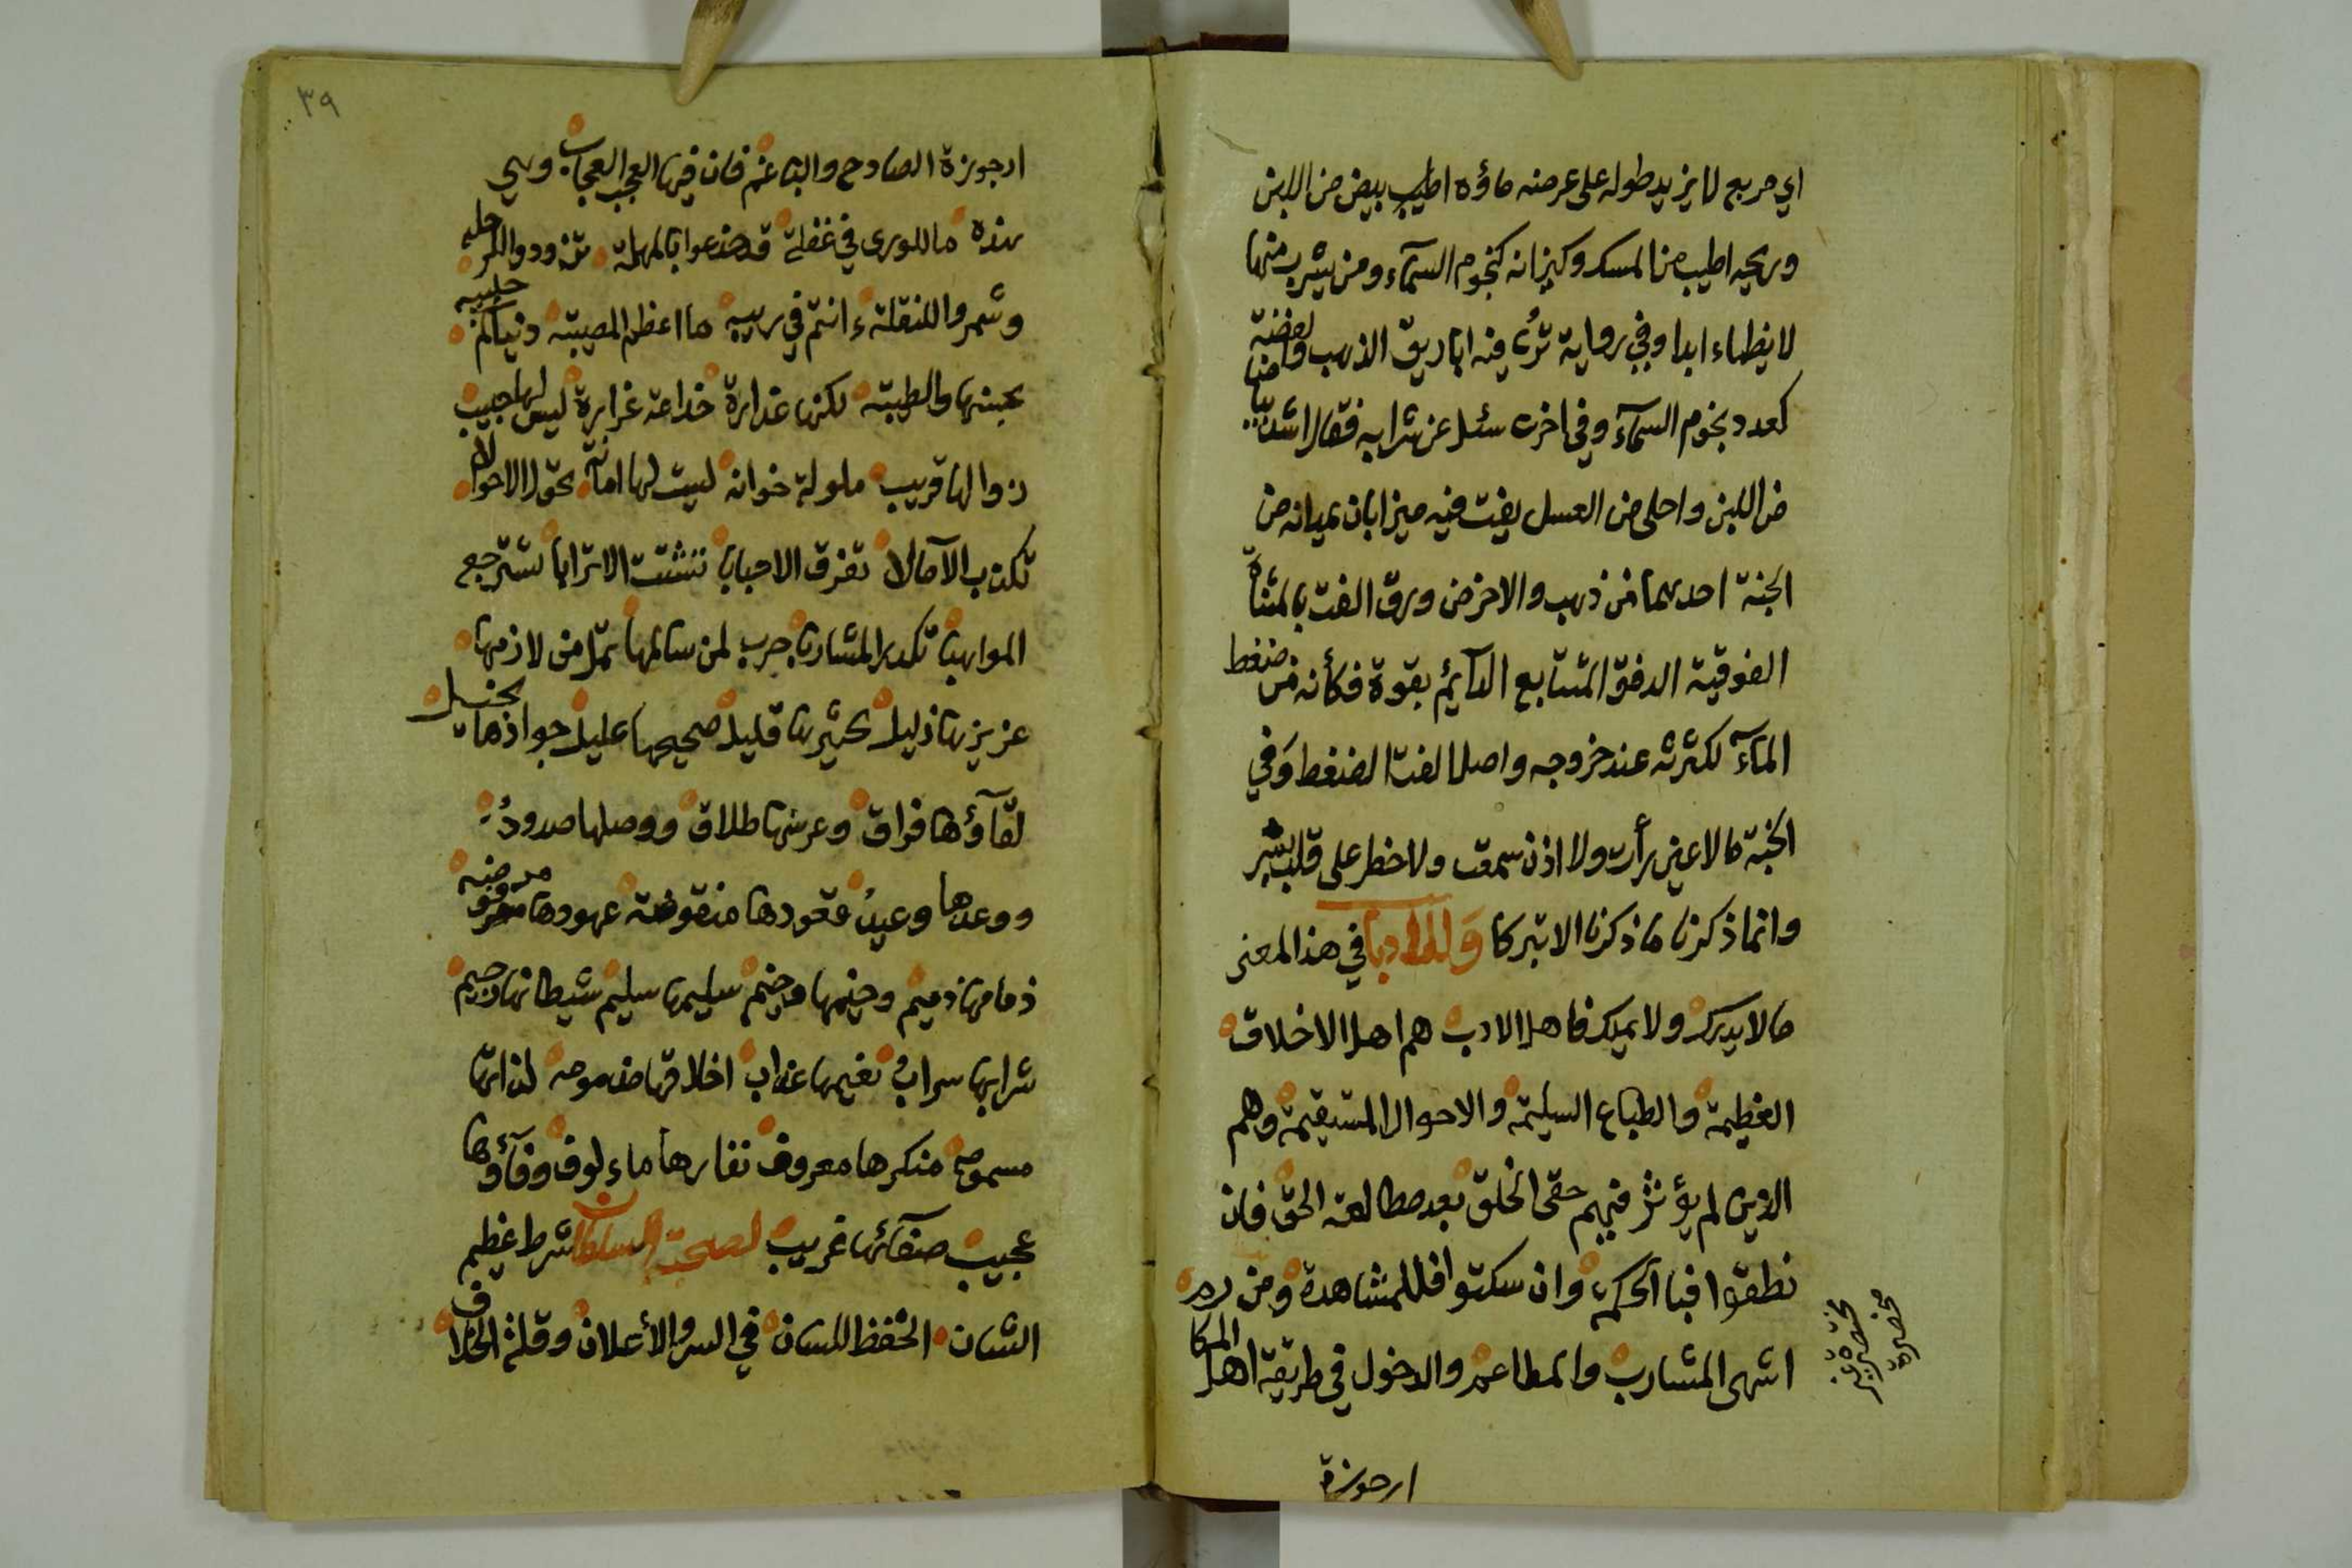 اي مربع لا يزيد طوله على عرضه ماؤه اطيب بيض من اللبن
وريحه اطيب من المسك وكيزانه كنجوم السمآء ومن يشرب منها
لا يظماء ابدا وفي رواية ترى فيه اباريق الذهب والفضة
كعدد نجوم السمآء وفي اخرى سئل عن شرابه فقال اشد بياضا
من اللبن واحلى من العسل يغت فيه ميزابان يمدانه من
الجنة احدهما من ذهب والاخر من ورق الغت بالمثناة
الفوقية الدفق المتتابع الدآئم بقوة فكأنه من ضغط
المآء لكثرته عند خروجه واصل الغت الضغط وفي
الجنة ما لا عين رأت ولا اذن سمعت ولا خطر على قلب بشر
وانما ذكرنا ما ذكرنا الا تبركا وللادبا في هذا المعنى
ما لا يدرك ولا يملك فاهل الادب هم اهل الاخلاق
العظيمة والطباع السليمة والاحوال المستقيمة وهم
الذين لم يؤثر فيهم حقى الخلق بعد مطالعة الحق فان
نطقوا فبا الحكمة وان سكتوا فللمشاهدة ومن
اشهى المشارب والمطاعم والدخول في طريقة اهل المكا
مختصرة
ارجوزة
٣٩
ارجوزة الصادح والباغم فان فيها العجب العجاب وهي
هذه ما للورى في غفلة قد خدعوا بالمهلة تزودوا للرحله
وشمروا للنقلة انتم في ريبه ما اعظم المصيبة دنياكم حبيبه
بحبنها والطيبة لكنها غدارة خداعة غرارة ليس لها حبيب
زوالها قريب ملولة خوانه ليست لها امانة تحول الاحوالا
تكذب الآمالا تفرق الاحبابا تشتت الاترابا تسترجع
المواهبا تكدر المشاربا حرب لمن سالمها تمل من لازمها
عزيزها ذليل كثيرها قليل صحيحها عليل جوادها بخيل
لقآؤها فراق وعرسها طلاق ووصلها صدود
ووعدها وعيد عقودها منقوضة عهودها مرفوضه
ذمامها ذميم وسليمها سليم شيطانها رجيم
شرابها سراب نعيمها عذاب اخلاقها مذمومه لذاتها
مسمومه منكرها معروف نفارها ماءلوف وفآؤها
عجيب صفآئها غريب لصحبة السلطان شرط عظيم
الشان الحفظ للسان في السر والأعلان وقلة الخلاف